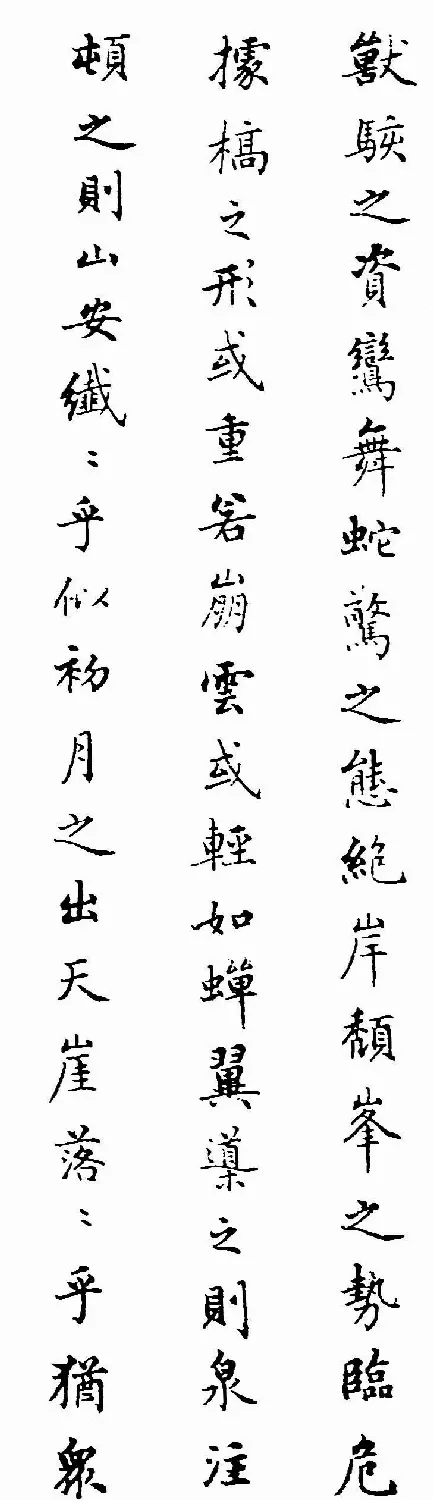 獸駭之資鸞舞蛇驚之態絶岸頽峯之勢臨危
據槁之形或重若崩雲或輕如蟬翼導之則泉注
頓之則山安纖〻乎似初月之出天崖落〻乎猶衆